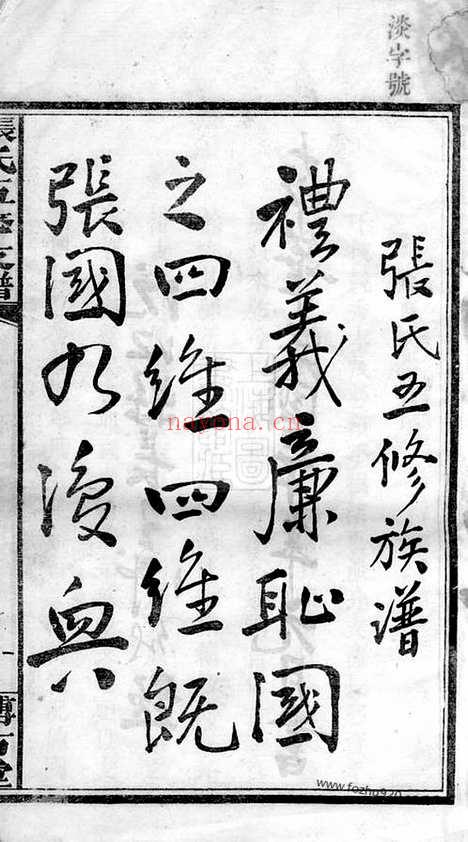 淡字號
張氏五修族譜
禮義廉恥國
之四維四維既
張國乃復興
張氏五修支譜
www.fozhu920
nayona.cn